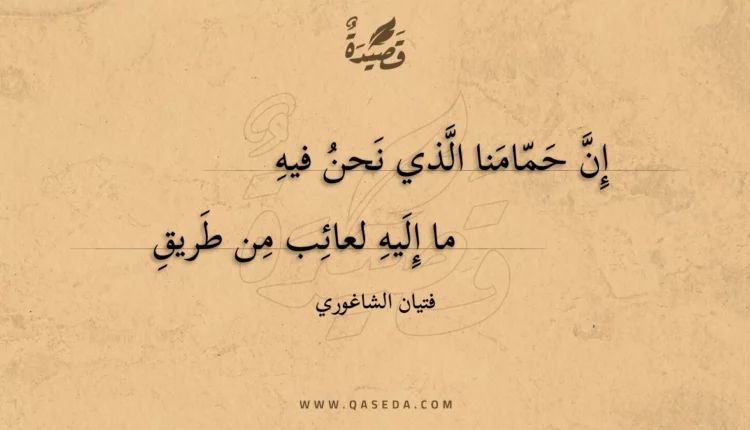 قَصِيْدَةٌ
إِنَّ حَمّامَنا الَّذي نَحنُ فيهِ
ما إِلَيهِ لعائِب مِن طَريقِ
فتيان الشاغوري
WWW.QASEDA.COM